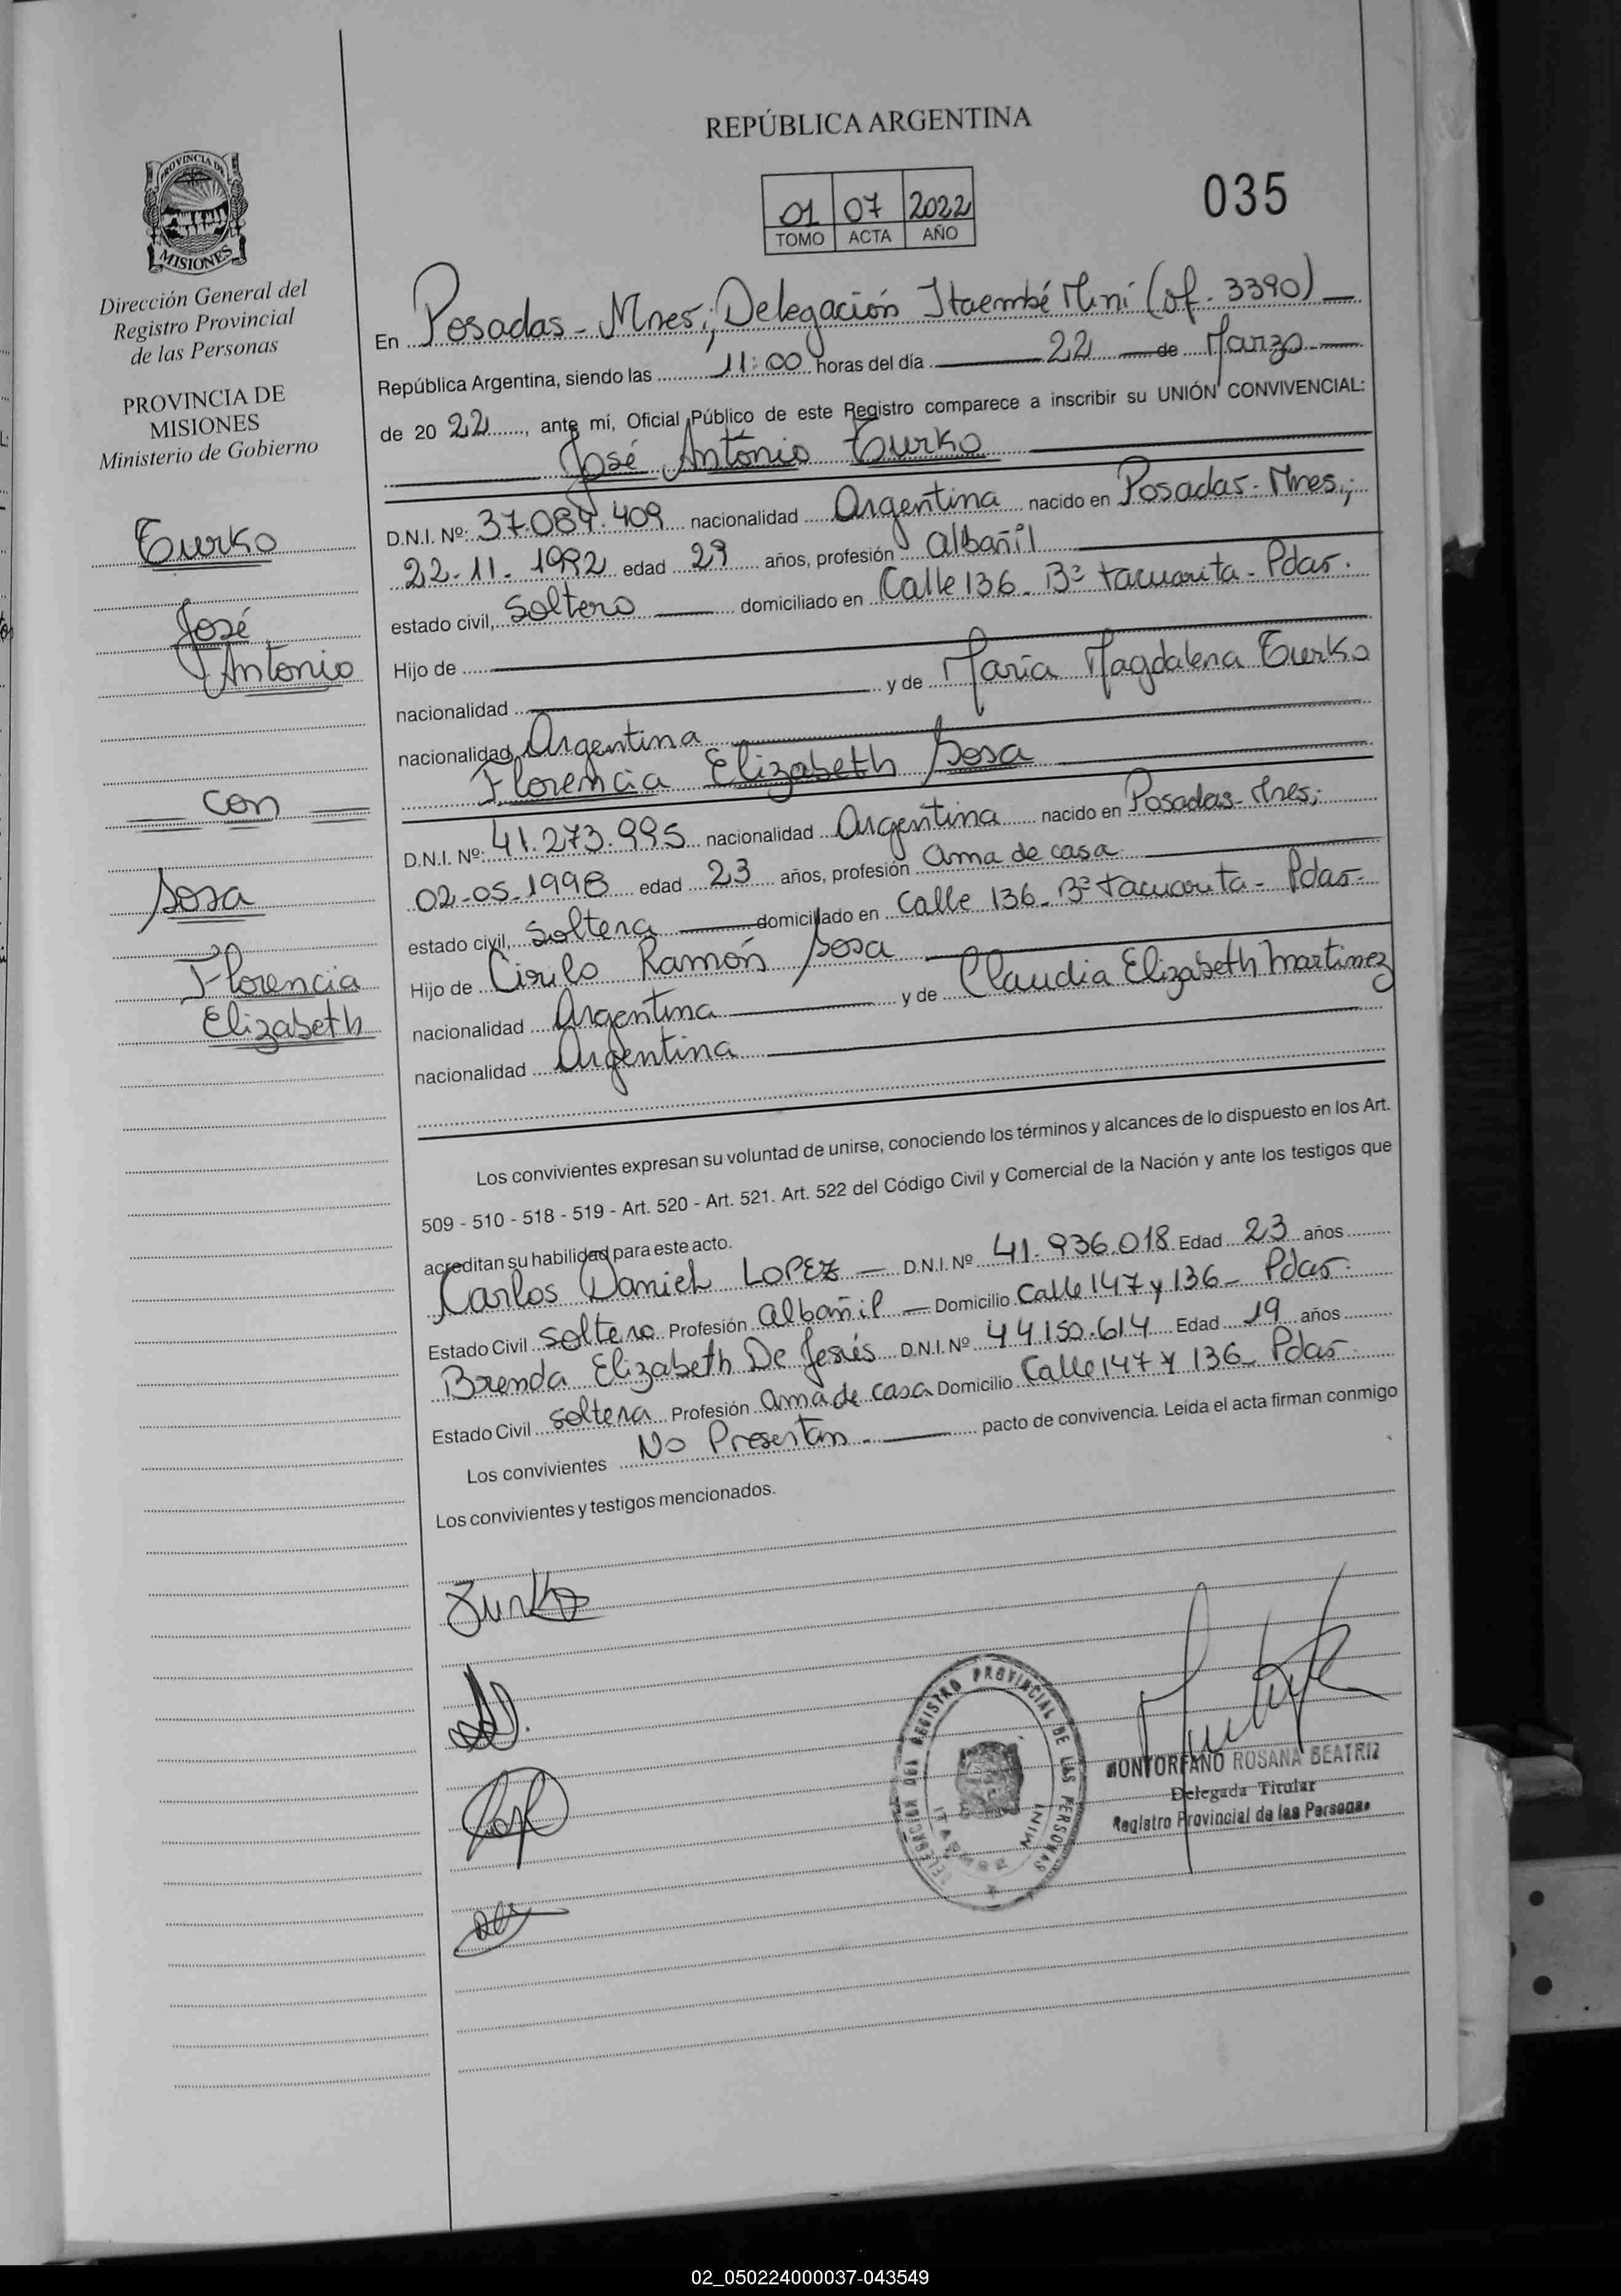 REPÚBLICA ARGENTINA
035
01 07 2022
TOMO ACTA AÑO
PROVINCIA DE
MISIONES
Dirección General del
Registro Provincial
de las Personas
PROVINCIA DE
MISIONES
Ministerio de Gobierno
Turko
José
Antonio
con
Sosa
Florencia
Elizabeth
En Posadas - Mnes; Delegación Itaembé Miní (of. 3390)
República Argentina, siendo las 11:00 horas del día 22 de Marzo
de 2022, ante mí, Oficial Público de este Registro comparece a inscribir su UNIÓN CONVIVENCIAL:
José Antonio Turko
D.N.I. Nº: 37.084.409 nacionalidad Argentina nacido en Posadas - Mnes.;
22-11-1992 edad 29 años, profesión albañil
estado civil, Soltero domiciliado en Calle 136 - Bº tacuarita - Pdas.
Hijo de
nacionalidad y de María Magdalena Turko
nacionalidad Argentina
Florencia Elizabeth Sosa
D.N.I. Nº: 41.273.995 nacionalidad Argentina nacido en Posadas - Mnes;
02-05-1998 edad 23 años, profesión ama de casa
estado civil, Soltera domiciliado en Calle 136 - Bº tacuarita - Pdas.
Hijo de Cirilo Ramón Sosa
nacionalidad Argentina y de Claudia Elizabeth Martinez
nacionalidad Argentina
Los convivientes expresan su voluntad de unirse, conociendo los términos y alcances de lo dispuesto en los Art.
509 - 510 - 518 - 519 - Art. 520 - Art. 521. Art. 522 del Código Civil y Comercial de la Nación y ante los testigos que
acreditan su habilidad para este acto.
Carlos Daniel LOPEZ D.N.I. Nº 41.936.018 Edad 23 años
Estado Civil soltero Profesión albañil Domicilio Calle 147 y 136 - Pdas.
Brenda Elizabeth De Jesús D.N.I. Nº 44.150.614 Edad 19 años
Estado Civil soltera Profesión ama de casa Domicilio Calle 147 y 136 - Pdas.
Los convivientes No Presentan pacto de convivencia. Leída el acta firman conmigo
Los convivientes y testigos mencionados.
Turko
REGISTRO PROVINCIAL DE LAS PERSONAS
MINI
MONTORFANO ROSANA BEATRIZ
Delegada Titular
Registro Provincial de las Personas
02_050224000037-043549